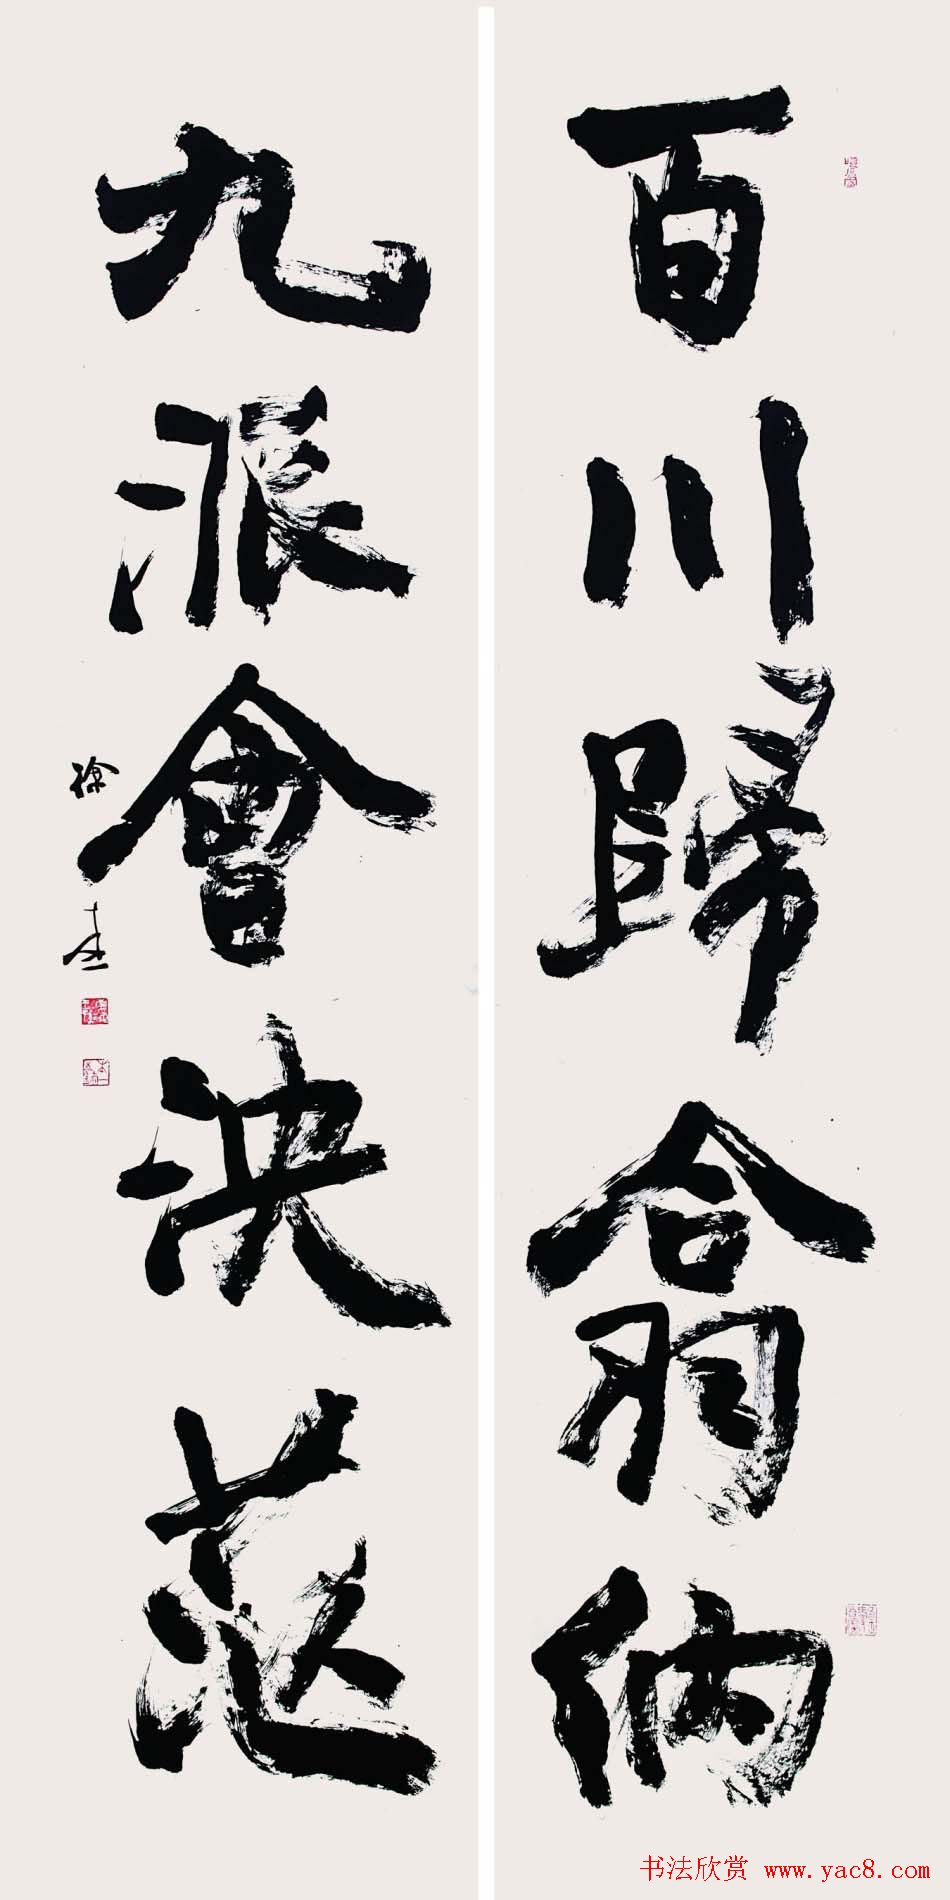 百川歸翕納
九派會泱茫
徐
书法欣赏 www.yac8.com